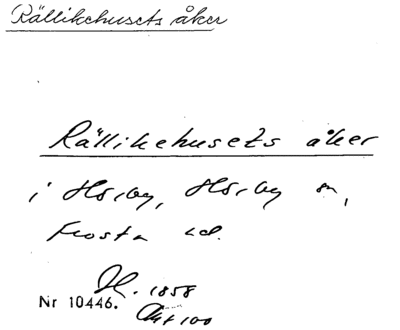 Rällikehusets åker
Rällikehusets åker
i Hörby, Hörby sn,
Frosta hd.
H. 1858
Nr 10446.
Akt 100